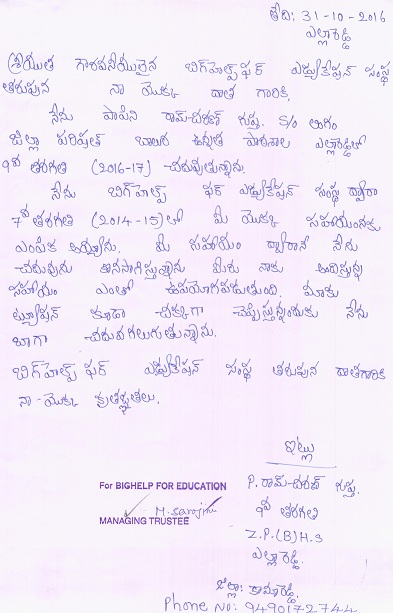 తేది: 31-10-2016
ఎల్లారెడ్డి
శ్రీయుత గౌరవనీయులైన బిగ్‌హెల్ప్ ఫర్ ఎడ్యుకేషన్ సంస్థ
తరుపున నా యొక్క దాత గారికి,
నేను పాపిని రామ్-చరణ్ గుప్త. S/o లింగం
జిల్లా పరిషత్ బాలుర ఉన్నత పాఠశాల ఎల్లారెడ్డిలో
9వ తరగతి (2016-17) చదువుతున్నాను.
నేను బిగ్‌హెల్ప్ ఫర్ ఎడ్యుకేషన్ సంస్థ ద్వారా
7వ తరగతి (2014-15)లో మీ యొక్క సహాయంనకు
ఎంపిక అయ్యాను. మీ సహాయం ద్వారానే నేను
చదువును కొనసాగిస్తున్నాను మీరు నాకు అందిస్తున్న
సహాయం ఎంతో ఉపయోగపడుతుంది. మాకు
ట్యూషన్ కూడా చక్కగా చెప్పిస్తున్నందుకు నేను
బాగా చదువగలుగుతున్నాను.
బిగ్‌హెల్ప్ ఫర్ ఎడ్యుకేషన్ సంస్థ తరుపున దాతగారికి
నా యొక్క కృతజ్ఞతలు.
ఇట్లు
P. రామ్-చరణ్ గుప్త.
9వ తరగతి
Z.P.(B)H.S
ఎల్లారెడ్డి.
జిల్లా: కామారెడ్డి.
Phone No: 9490172744
For BIGHELP FOR EDUCATION
M. Sarojini
MANAGING TRUSTEE